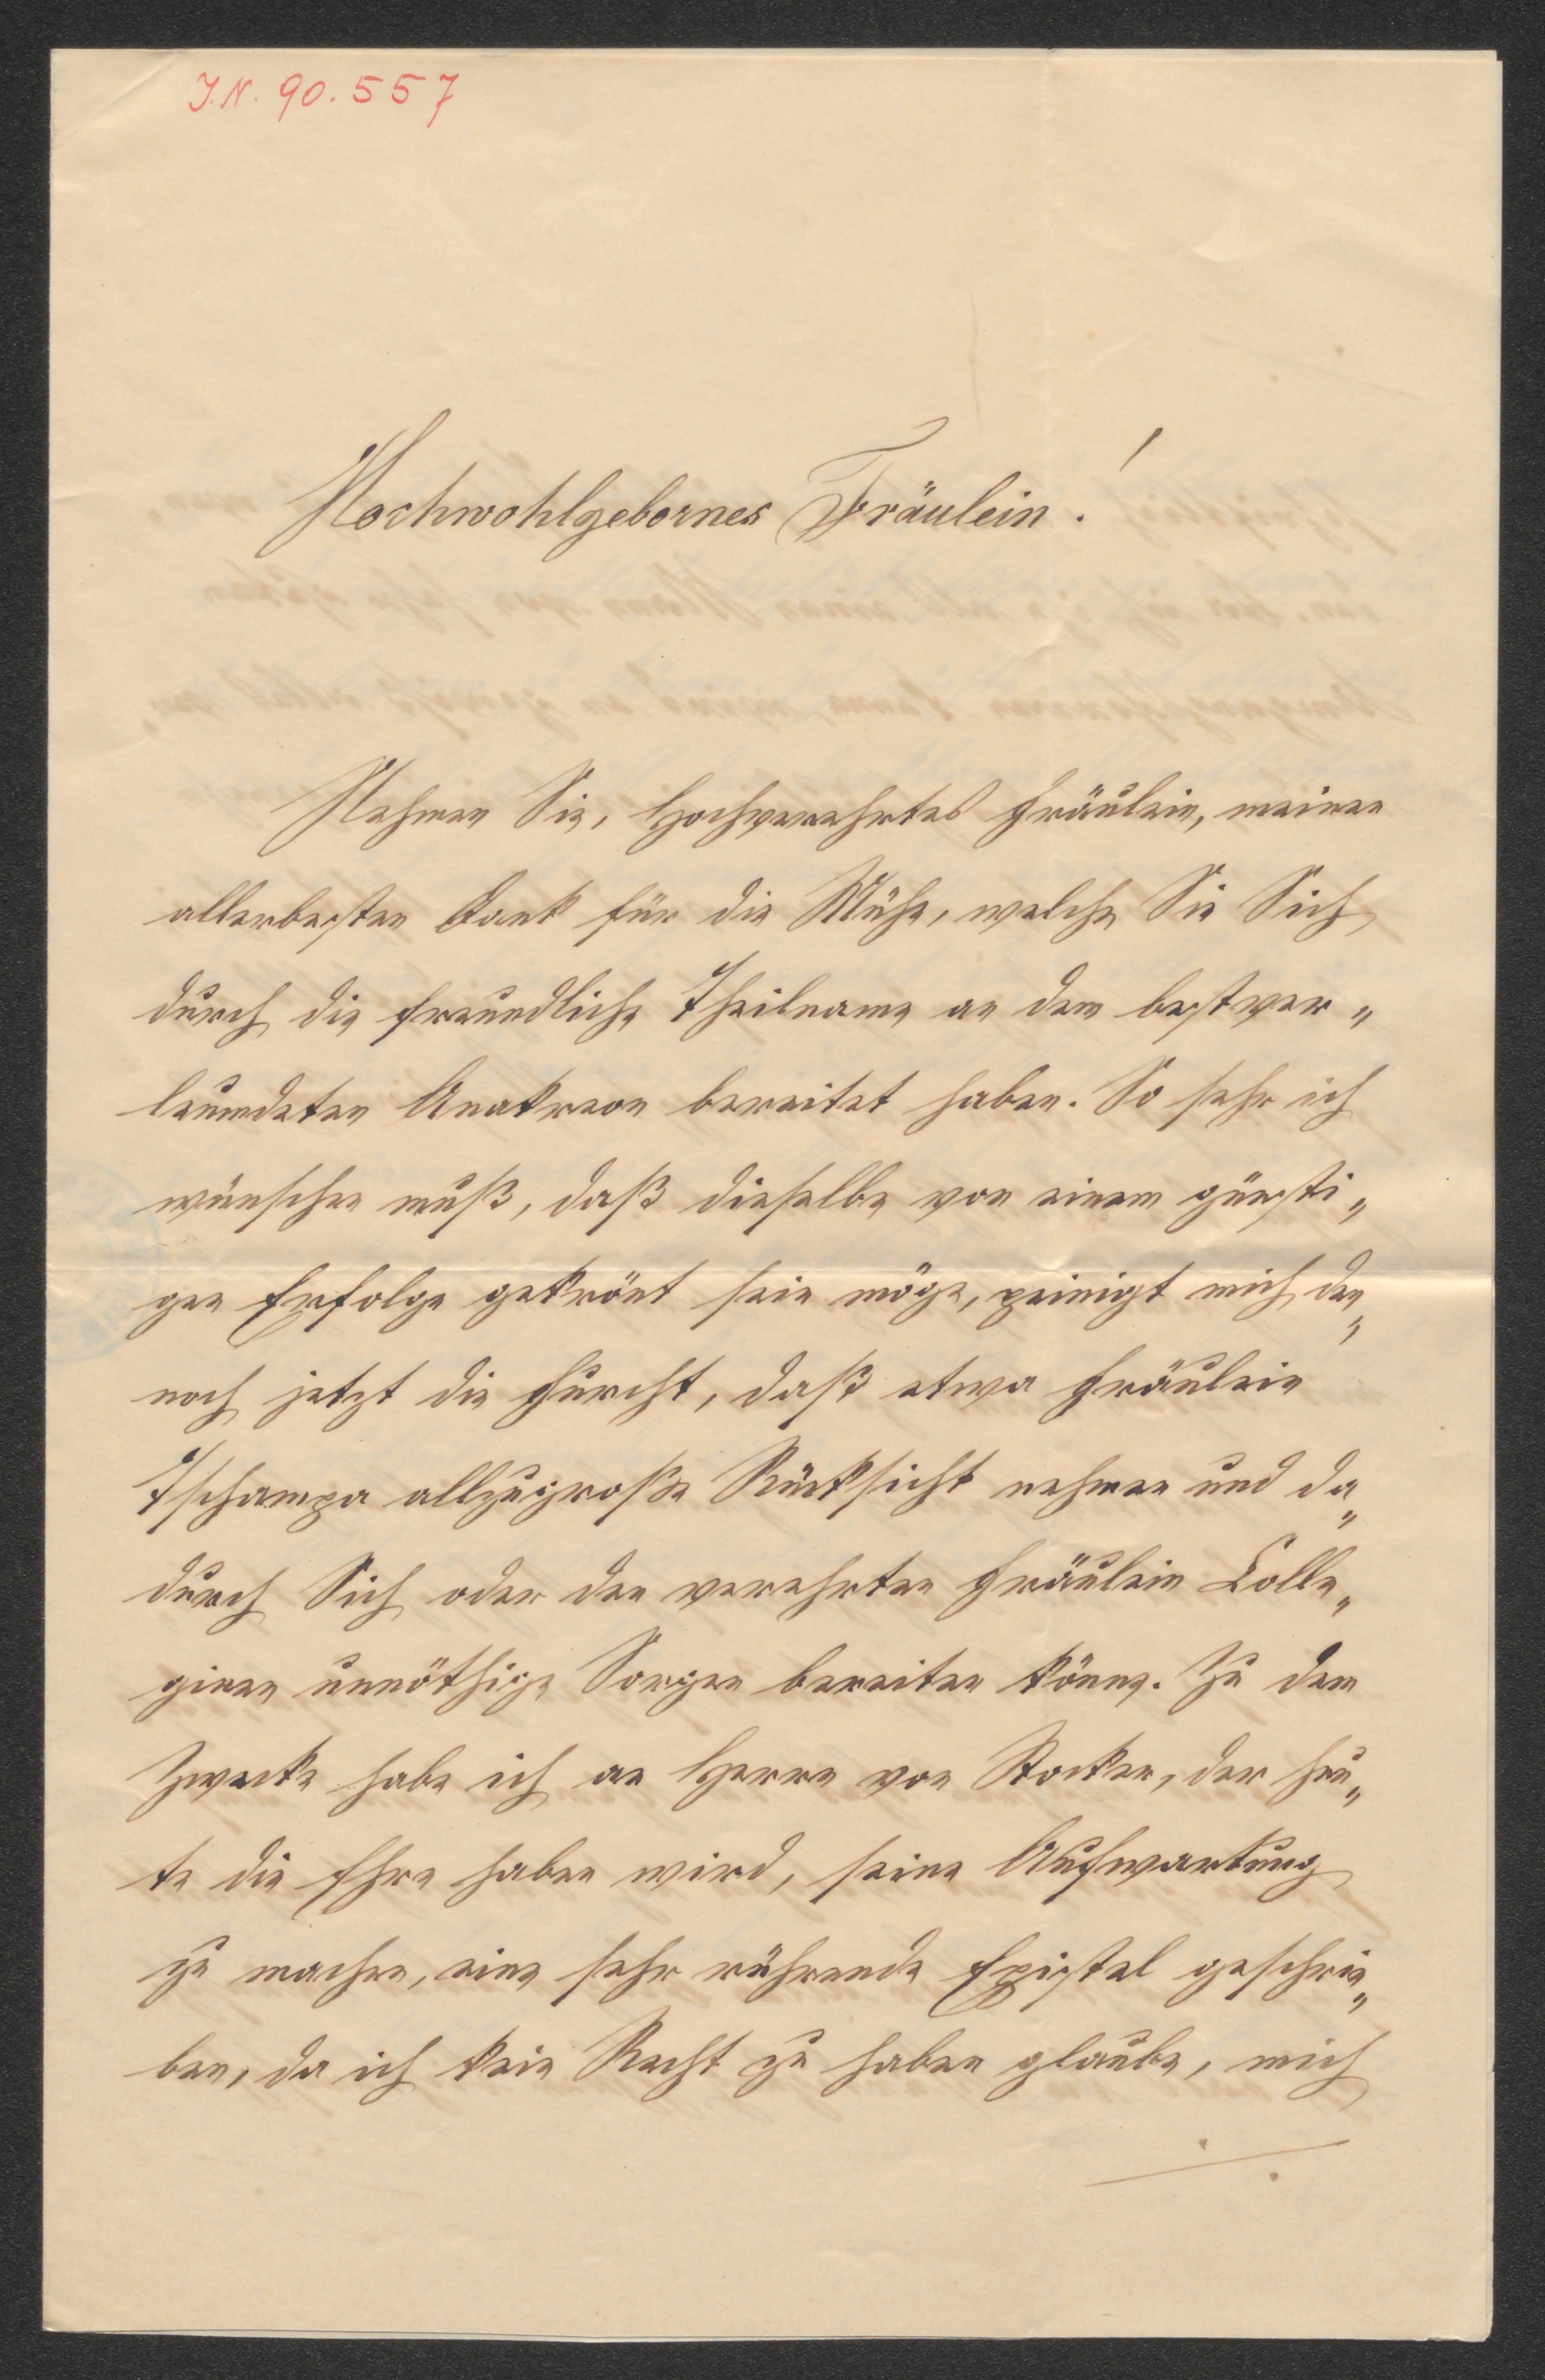 J.N. 90.557
Hochwohlgebornes Fräulein!
Nehmen Sie, Hochverehrtes Fräulein, meinen
allerbesten Dank für die Mühe, welche Sie Sich
durch die freundliche Theilname an dem bestver„
leumdeten Anakreon bereitet haben. So sehr ich
wünschen muß, daß dieselbe von einem günsti„
gen Erfolge gekrönt sein möge, peinigt mich den„
noch jetzt die Furcht, daß etwa Fräulein
Tschampa allzugroße Rücksicht nehmen und da„
durch Sich oder den verehrten Fräulein Colle„
ginen unnöthige Sorgen bereiten könne. Zu dem
Zwecke habe ich an Herrn von Stocker, der heu„
te die Ehre haben wird, seine Aufwartung
zu machen, eine sehr rührende Epistel geschrie„
ben, da ich kein Recht zu haben glaube, mich
./.